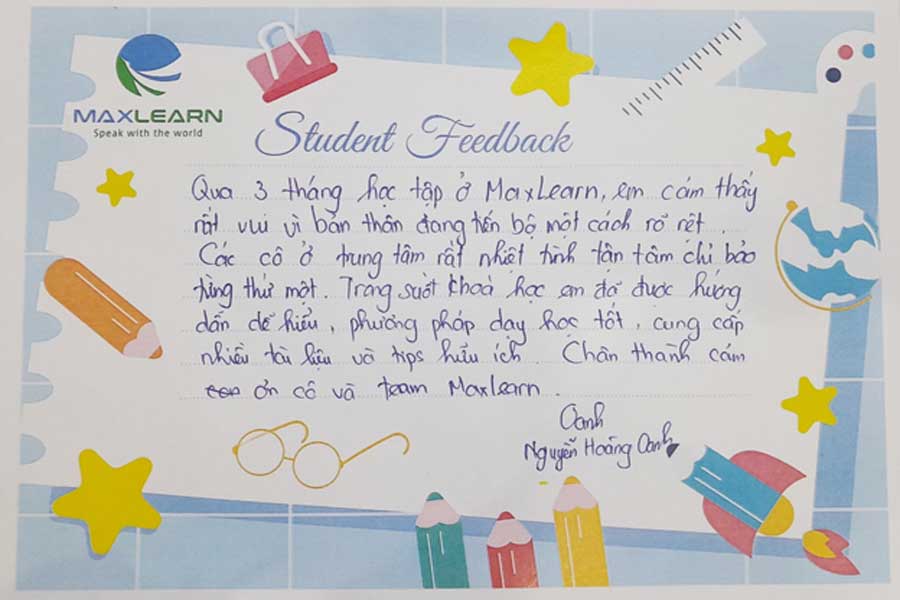 MAXLEARN
Speak with the world
Student Feedback
Qua 3 tháng học tập ở MaxLearn, em cảm thấy
rất vui vì bản thân đang tiến bộ một cách rõ rệt.
Các cô ở trung tâm rất nhiệt tình tận tâm chỉ bảo
từng thứ một. Trong suốt khoá học em đã được hướng
dẫn dễ hiểu, phương pháp dạy học tốt, cung cấp
nhiều tài liệu và tips hữu ích. Chân thành cám
ơn cô và team Maxlearn.
Oanh
Nguyễn Hoàng Oanh